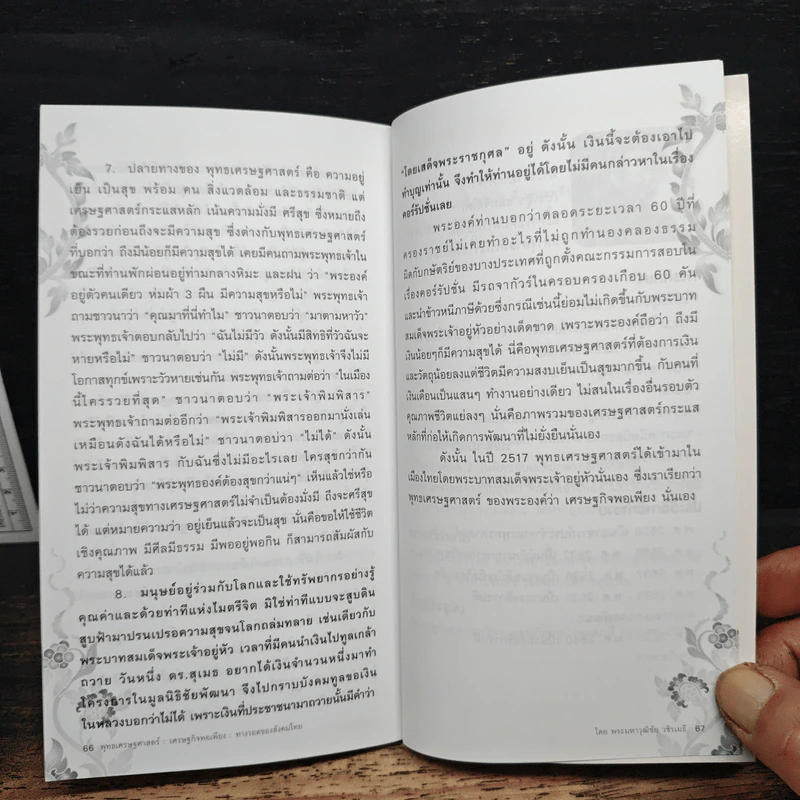 7. ปลายทางของ พุทธเศรษฐศาสตร์ คือ ความอยู่
เย็น เป็นสุข พร้อม คน สิ่งแวดล้อม และธรรมชาติ แต่
เศรษฐศาสตร์กระแสหลัก เน้นความมั่งมี ศรีสุข ซึ่งหมายถึง
ต้องรวยก่อนถึงจะมีความสุข ซึ่งต่างกับพุทธเศรษฐศาสตร์
ที่บอกว่า ถึงมีน้อยก็มีความสุขได้ เคยมีคนถามพระพุทธเจ้าใน
ขณะที่ท่านพักผ่อนอยู่ท่ามกลางหิมะ และฝน ว่า “พระองค์
อยู่ตัวคนเดียว ห่มผ้า 3 ผืน มีความสุขหรือไม่” พระพุทธเจ้า
ถามชาวนาว่า “คุณมาที่นี่ทำไม” ชาวนาตอบว่า “มาตามหาวัว”
พระพุทธเจ้าตอบกลับไปว่า “ฉันไม่มีวัว ดังนั้นมีสิทธิที่วัวฉันจะ
หายหรือไม่” ชาวนาตอบว่า “ไม่มี” ดังนั้นพระพุทธเจ้าจึงไม่มี
โอกาสทุกข์เพราะวัวหายเช่นกัน พระพุทธเจ้าถามต่อว่า “ในเมือง
นี้ใครรวยที่สุด” ชาวนาตอบว่า “พระเจ้าพิมพิสาร”
พระพุทธเจ้าถามต่ออีกว่า “พระเจ้าพิมพิสารออกมานั่งเล่น
เหมือนดังฉันได้หรือไม่” ชาวนาตอบว่า “ไม่ได้” ดังนั้น
พระเจ้าพิมพิสาร กับฉันซึ่งไม่มีอะไรเลย ใครสุขกว่ากัน
ชาวนาตอบว่า “พระพุทธองค์ต้องสุขกว่าแน่ๆ” เห็นแล้วใช่หรือ
ไม่ว่าความสุขทางเศรษฐศาสตร์ไม่จำเป็นต้องมั่งมี ถึงจะศรีสุข
ได้ แต่หมายความว่า อยู่เย็นแล้วจะเป็นสุข นั่นคือขอให้ใช้ชีวิต
เชิงคุณภาพ มีศีลมีธรรม มีพออยู่พอกิน ก็สามารถสัมผัสกับ
ความสุขได้แล้ว
8. มนุษย์อยู่ร่วมกับโลกและใช้ทรัพยากรอย่างรู้
คุณค่าและด้วยท่าทีแห่งไมตรีจิต มิใช่ท่าทีแบบจะสูบดิน
สูบฟ้ามาปรนเปรอความสุขจนโลกถล่มทลาย เช่นเดียวกับ
พระบาทสมเด็จพระเจ้าอยู่หัว เวลาที่มีคนนำเงินไปทูลเกล้า
ถวาย วันหนึ่ง ดร.สุเมธ อยากได้เงินจำนวนหนึ่งมาทำ
โครงการในมูลนิธิชัยพัฒนา จึงไปกราบบังคมทูลขอเงิน
ในหลวงบอกว่าไม่ได้ เพราะเงินที่ประชาชนามาถวายนั้นมีคำว่า
66 พุทธเศรษฐศาสตร์ : เศรษฐกิจพอเพียง : ทางรอดของสังคมไทย
“โดยเสด็จพระราชกุศล” อยู่ ดังนั้น เงินนี้จะต้องเอาไป
ทำบุญเท่านั้น จึงทำให้ท่านอยู่ได้โดยไม่มีคนกล่าวหาในเรื่อง
คอร์รัปชั่นเลย
พระองค์ท่านบอกว่าตลอดระยะเวลา 60 ปีที่
ครองราชย์ไม่เคยทำอะไรที่ไม่ถูกทำนองคลองธรรม
ผิดกับกษัตริย์ของบางประเทศที่ถูกตั้งคณะกรรมการสอบใน
เรื่องคอร์รัปชั่น มีรถจากัวร์ในครอบครองเกือบ 60 คัน
และนำข้าวหนีภาษีด้วยซึ่งกรณีเช่นนี้ย่อมไม่เกิดขึ้นกับพระบาท
สมเด็จพระเจ้าอยู่หัวอย่างเด็ดขาด เพราะพระองค์ถือว่า ถึงมี
เงินน้อยๆก็มีความสุขได้ นี่คือพุทธเศรษฐศาสตร์ที่ต้องการเงิน
และวัตถุน้อยลงแต่ชีวิตมีความสงบเย็นเป็นสุขมากขึ้น กับคนที่
เงินเดือนเป็นแสนๆ ทำงานอย่างเดียว ไม่สนในเรื่องอื่นรอบตัว
คุณภาพชีวิตแย่ลงๆ นั่นคือภาพรวมของเศรษฐศาสตร์กระแส
หลักที่ก่อให้เกิดการพัฒนาที่ไม่ยั่งยืนนั่นเอง
ดังนั้น ในปี 2517 พุทธเศรษฐศาสตร์ได้เข้ามาใน
เมืองไทยโดยพระบาทสมเด็จพระเจ้าอยู่หัวนั่นเอง ซึ่งเราเรียกว่า
พุทธเศรษฐศาสตร์ ของพระองค์ว่า เศรษฐกิจพอเพียง นั่นเอง
โดย พระมหาวุฒิชัย วชิรเมธี 67